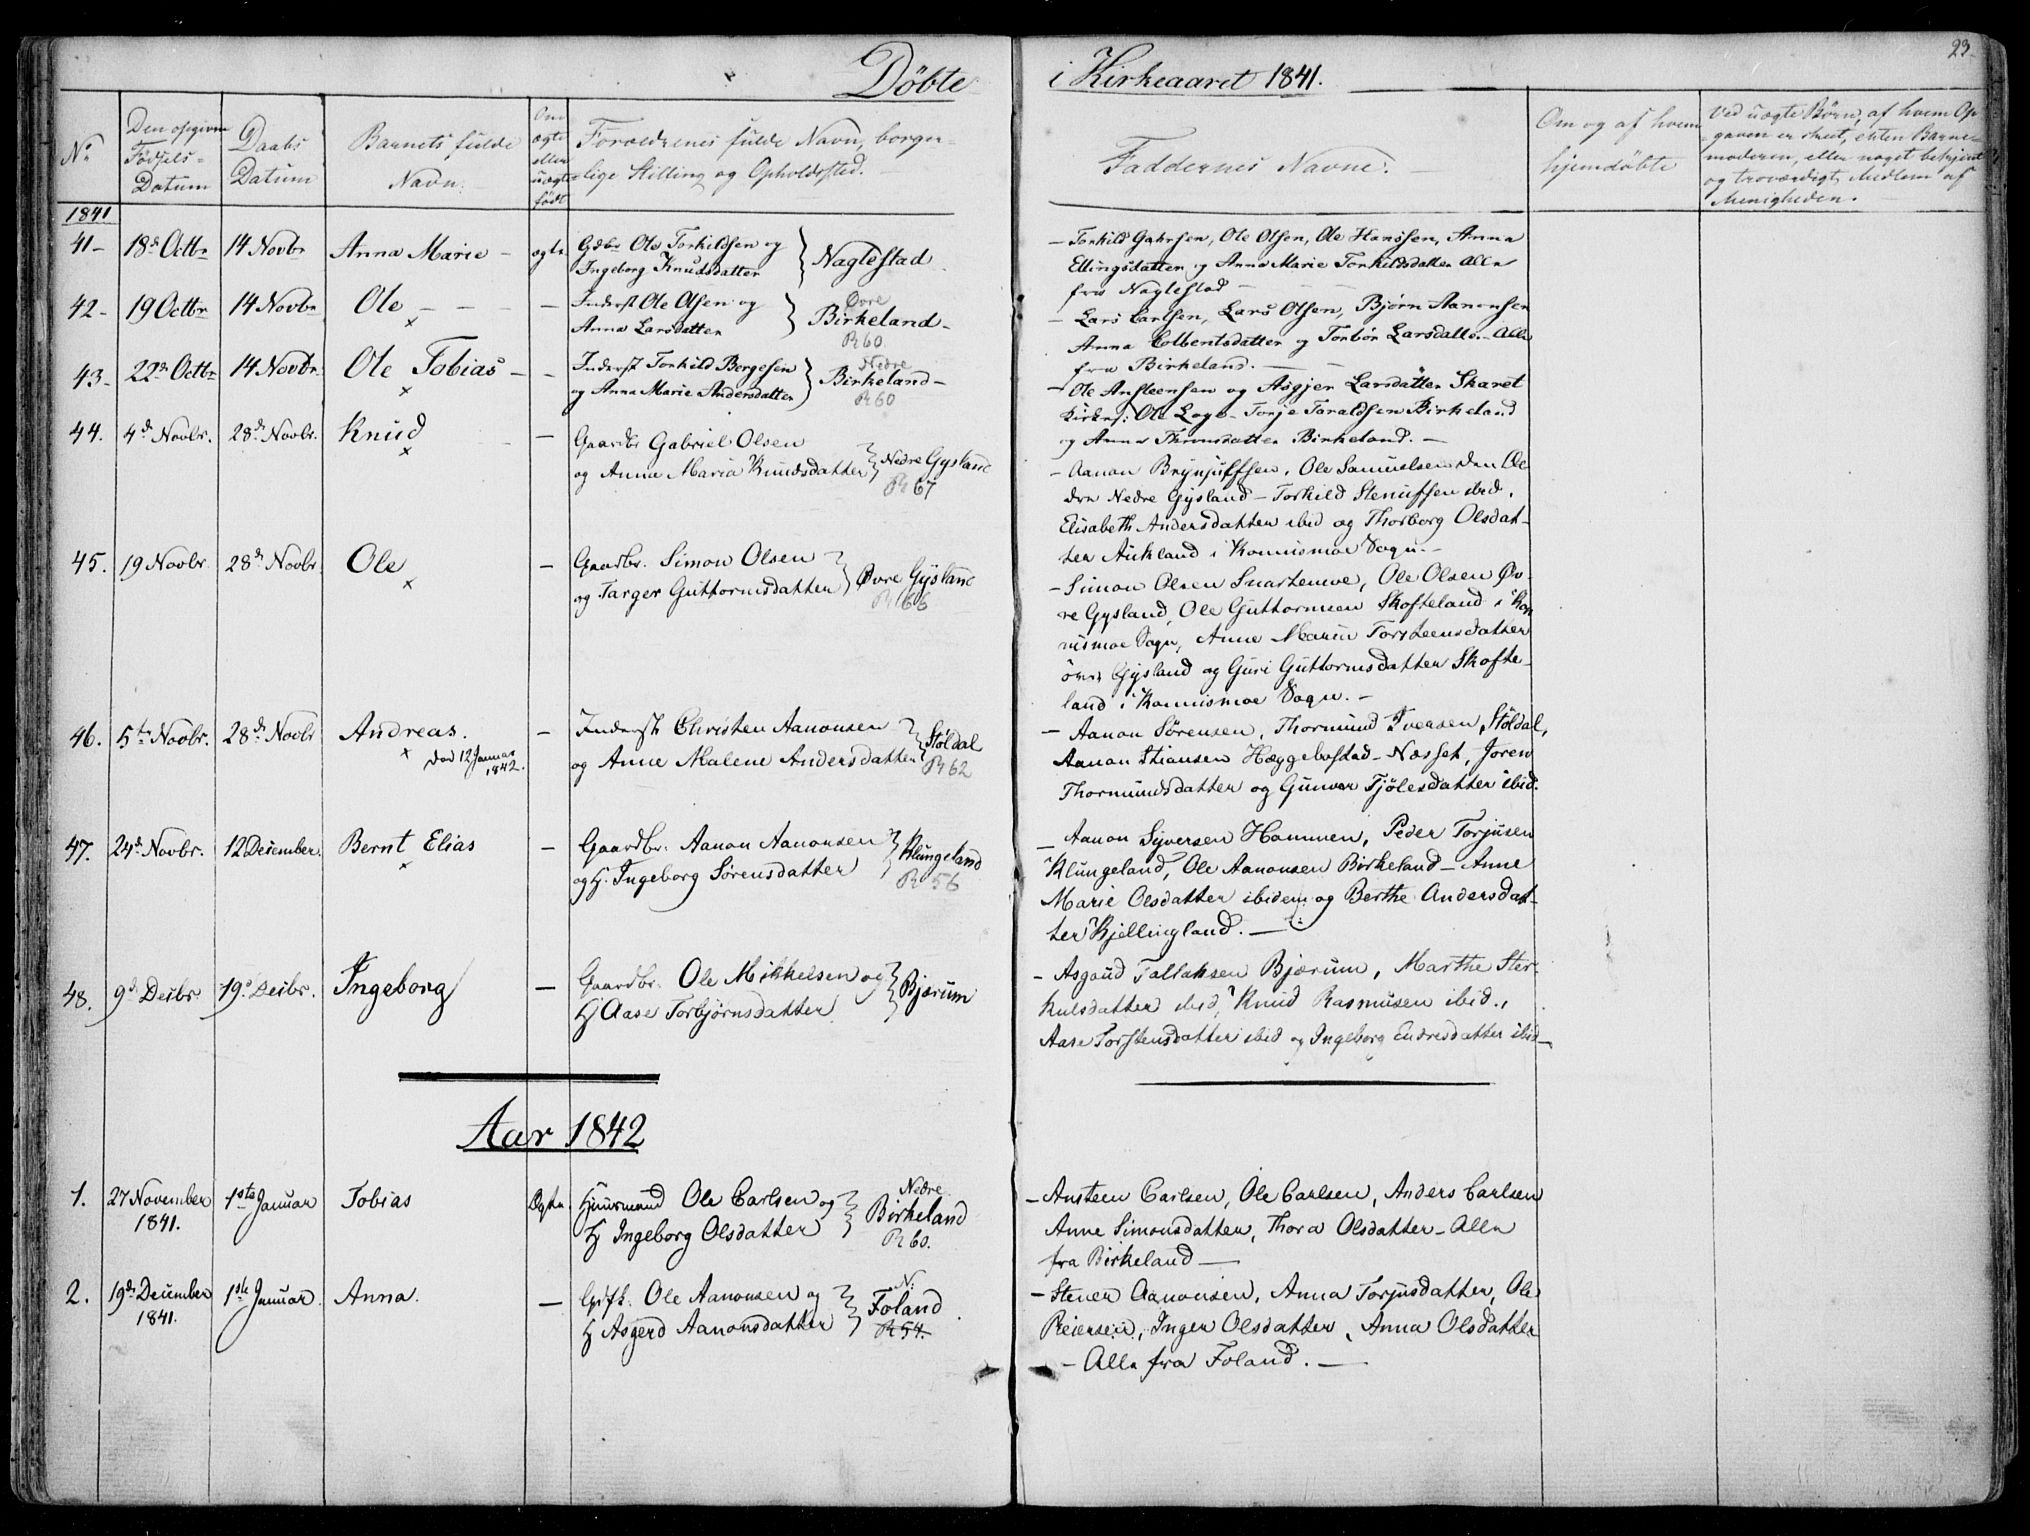 Döbte i Kirkeaaret 1841.
23
No
Den opgivne Fødsels-Datum
Daabs Datum
Barnets fulde Navn.
Om ægte eller uægte født
Forældrenes fulde Navn, borger-
lige Stilling og Opholdssted.
Faddernes Navne.
Om og af hvem
hjemdöbte
Ved uægte Børn, af hvem Op-
gaven er skeet, enten Barne-
moderen, eller noget bekjent
og troværdigt Medlem af
Menigheden.
1841
41- 18de Octbr 14 Novbr Anna Marie - ægte
Gdbr Ole Torkildsen og
Ingeborg Knudsdatter } Naglestad
- Torkild Ole Olsen, Ole Hansen, Anna
Ellingsdatter og Anna Marie Torkildsdatter Alle
fra Naglestad
42- 19 Octbr 14 Novbr Ole - - -
Inderst Ole Olsen og
Anna Larsdatter } Øvre Birkeland-
R 60
- Lars Carlsen, Lars Olsen, Bjørn Aanensen
Anna Colbentsdatter og Tonbør Larsdatter - Alle
fra Birkeland. -
43- 22de Octbr 14 Novbr Ole Tobias - -
Inderst Torkild Bergesen
og Anna Marie Andersdatter } Nedre Birkeland-
R 60
- Ole Ansteensen og Asgjer Larsdatter Skaret
Ole Loge - Tonje Taraldsen Birkeland
og Anna Birkeland. -
44. 4de Novbr. 28de Novbr. Knud -
Gaardbr Gabriel Olsen
og Anne Maria Knudsdatter } Nedre Gysland
R 67
- Aanon Brynjulfsen, Ole Samuelsen den Æl
dre Nedre Gysland - Torkild Stenufsen ibid.
Elisabeth Andersdatter ibid og Thorborg Olsdat-
ter Aukland i Konnismoe Sogn. -
45. 19 Novbr. 28de Novbr. Ole -
Gaardbr. Simon Olsen
og Targer Guttormsdatter } Øvre Gysland
R 66
- Simon Olsen Snartemoe, Ole Olsen Øv-
re Gysland, Ole Guttormsen Skofteland i Kon
nismoe Sogn, Anne Marie Torsteensdatter
övre Gysland og Guri Guttormsdatter Skofte-
land i Konnismoe Sogn. -
46. 5te Novbr. 28de Novbr Andreas. -
död 12 Januar
1842.
Inderst Christen Aanonsen
og Anne Malene Andersdatter } Stöldal
R 62
- Aanon Sørensen, Thormund Iversen Stöldal,
Aanon Stiansen Hæggebostad - Næsset, Joren
Thormundsdatter og Gunvor Tjölesdatter ibid.
47. 24de Novbr. 12 December. Bernt Elias -
Gaardbr. Aanon Aanonsen
og H. Ingeborg Sörensdatter } Klungeland
R 56
- Aanon Syversen Hommen, Peder Torjusen
Klungeland, Ole Aanonsen Birkeland - Anne
Marie Olsdatter ibidem og Berthe Andersdat-
ter Kjellingland. -
48. 9de Decbr. 19de Decbr. Ingeborg -
Gaardbr. Ole Mikkelsen og
H Aase Torbjørnsdatter } Bjærum
- Asgoud Tallaksen Bjærum, Marthe Ster-
kulsdatter ibid, Knud Rasmusen ibid.,
Aase Torstensdatter ibid og Ingeborg Endresdatter ibid -
Aar 1842
1. 27 November 1841. 1ste Januar Tobias Ægte.
Huusmand Ole Carlsen og
H Ingeborg Olsdatter } Nedre Birkeland
R 60.
- Ansteen Carlsen, Ole Carlsen, Anders Carlsen
Anne Simonsdatter, Thora Olsdatter - Alle
fra Birkeland -
2. 19de December 1841. 1ste Januar. Anna. -
Ole Aanonsen og
H Asgerd Aanonsdatter } N: Foland
R 54.
- Stener Aanonsen, Anna Torjusdatter, Ole
Reiersen, Inger Olsdatter, Anna Olsdatter
- Alle fra Foland. -